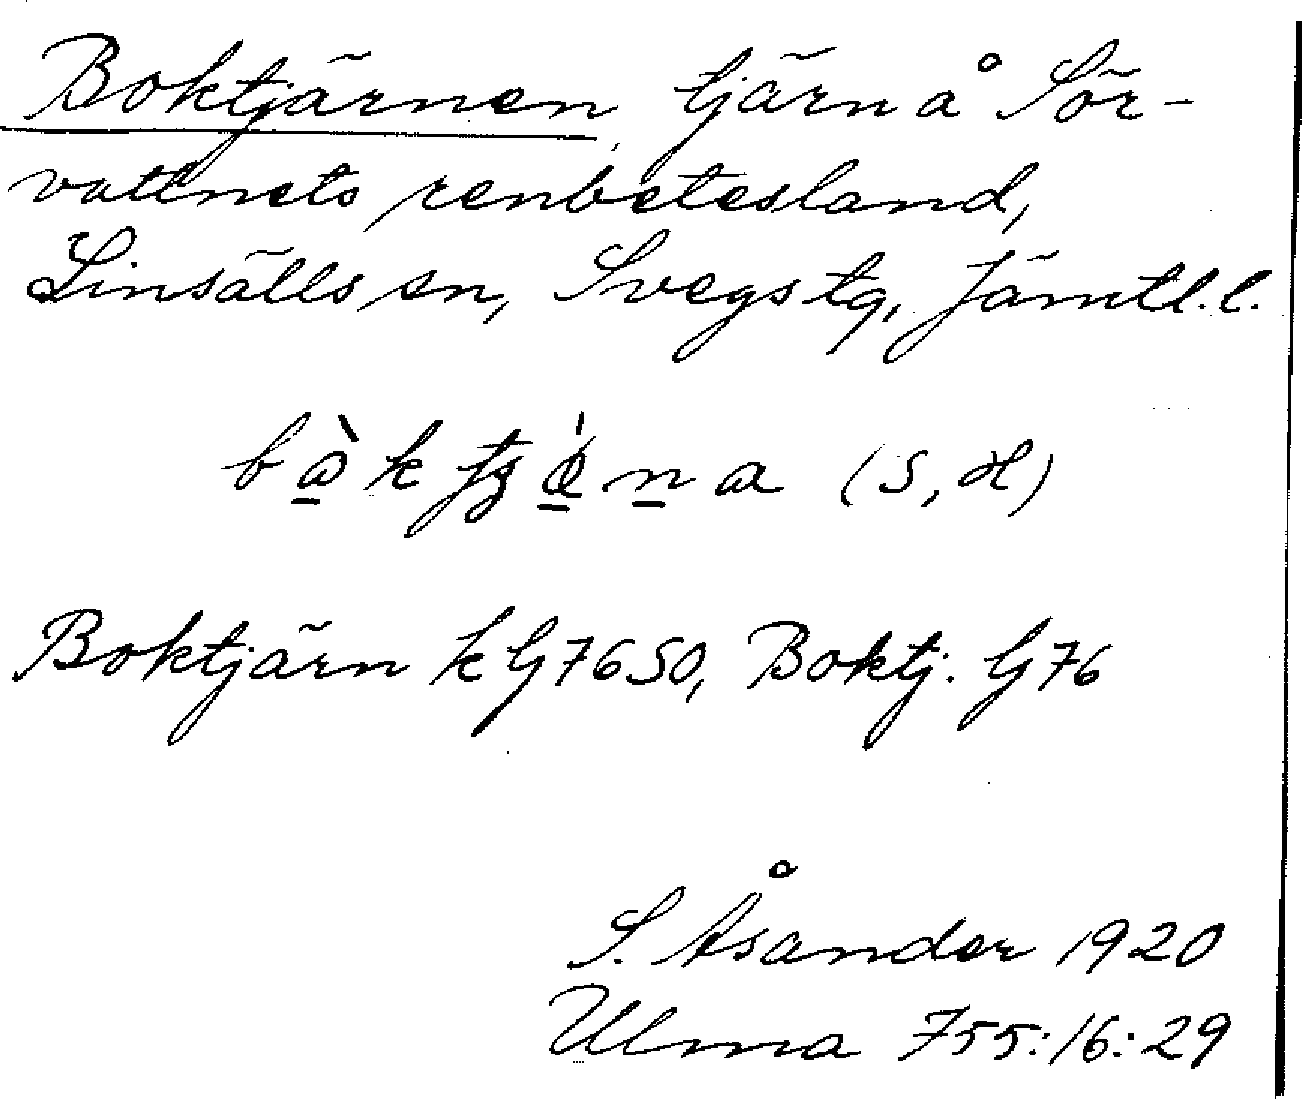 Boktjärnen, tjärn å Sör-
vattnets renbetesland,
Linsälls sn, Svegs tg, Jämtl. l.
(S, H)
Boktjärn kG7650, Boktj: G76
S. Åsander 1920
Ulma 755:16:29